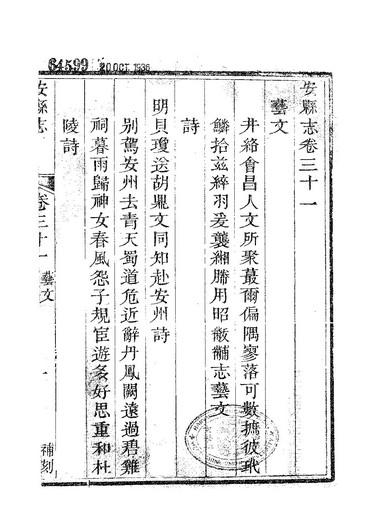 64599
20 OCT 1936
安縣志卷三十一
藝文
井絡會昌人文所聚蕞爾偏隅寥落可數摭彼玳
鱗拾茲綷羽爰襲緗縢用昭黻黼志藝文
詩
明貝瓊送胡鼎文同知赴安州詩
别駕安州去青天蜀道危近辭丹鳳闕遠過碧雞
祠暮雨歸神女春風怨子規宦遊多好思重和杜
陵詩
安縣志
卷三十一 藝文
一
補刻